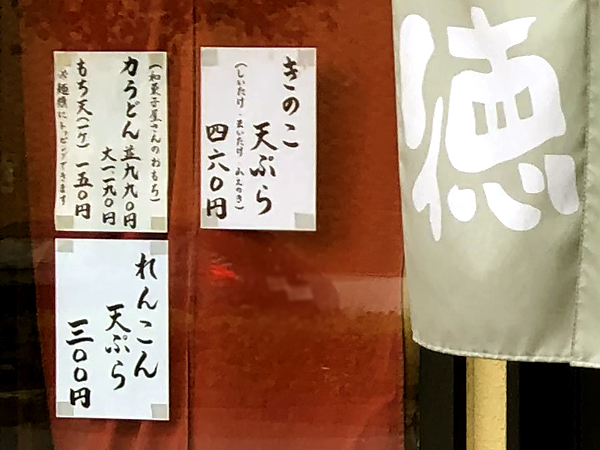 徳
きのこ
天ぷら
(しいたけ・まいたけ・ぶなしめじ)
四六〇円
力うどん 並九九〇円
大一一九〇円
(和菓子屋さんのおもち)
もち天(一ケ) 一五〇円
※麺類にトッピングできます
れんこん
天ぷら
三〇〇円